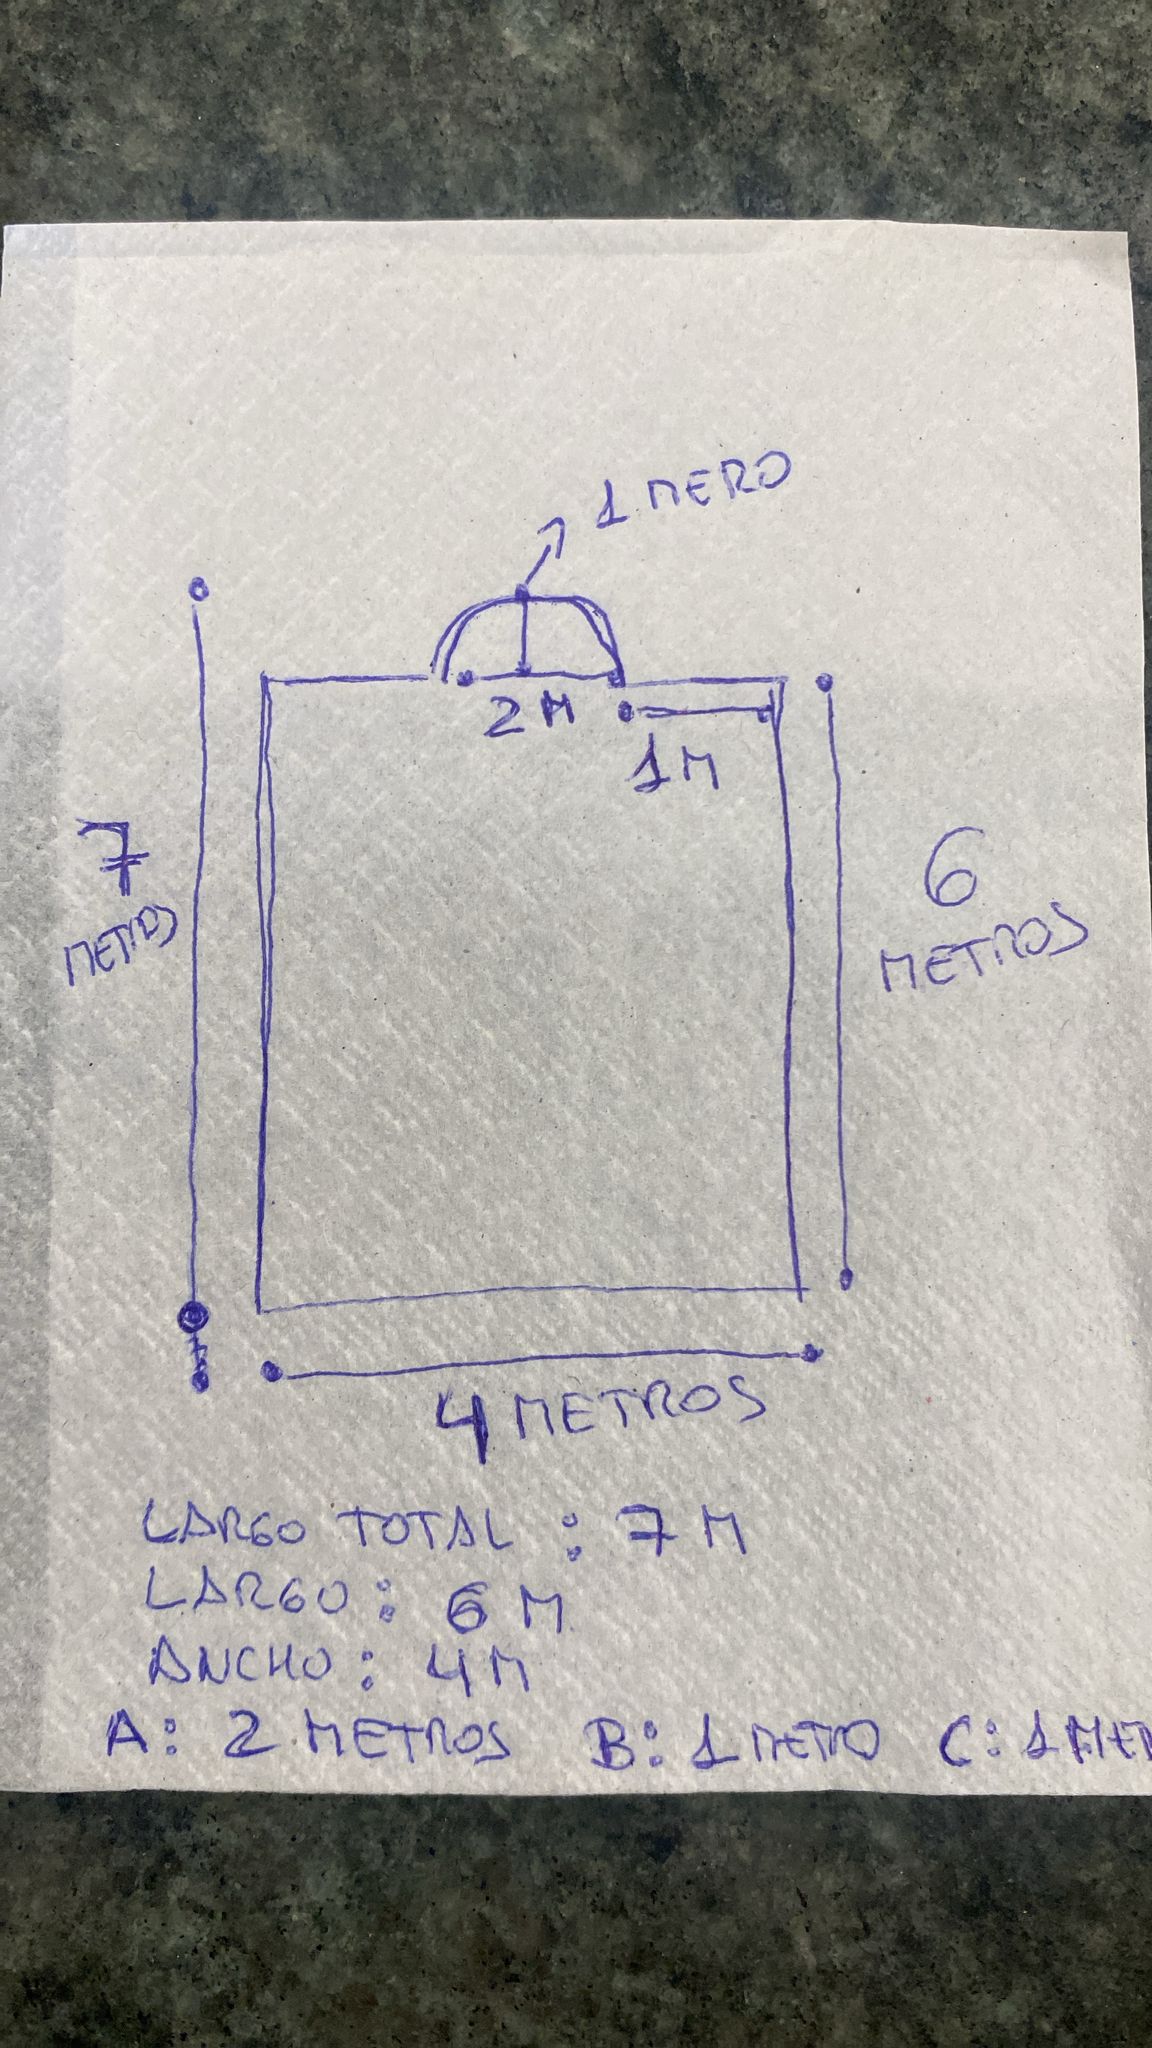 1 MERO
2 M
1 M
7
METROS
6
METROS
4 METROS
LARGO TOTAL : 7 M
LARGO : 6 M
ANCHO : 4 M
A: 2 METROS B: 1 METRO C: 1 MET